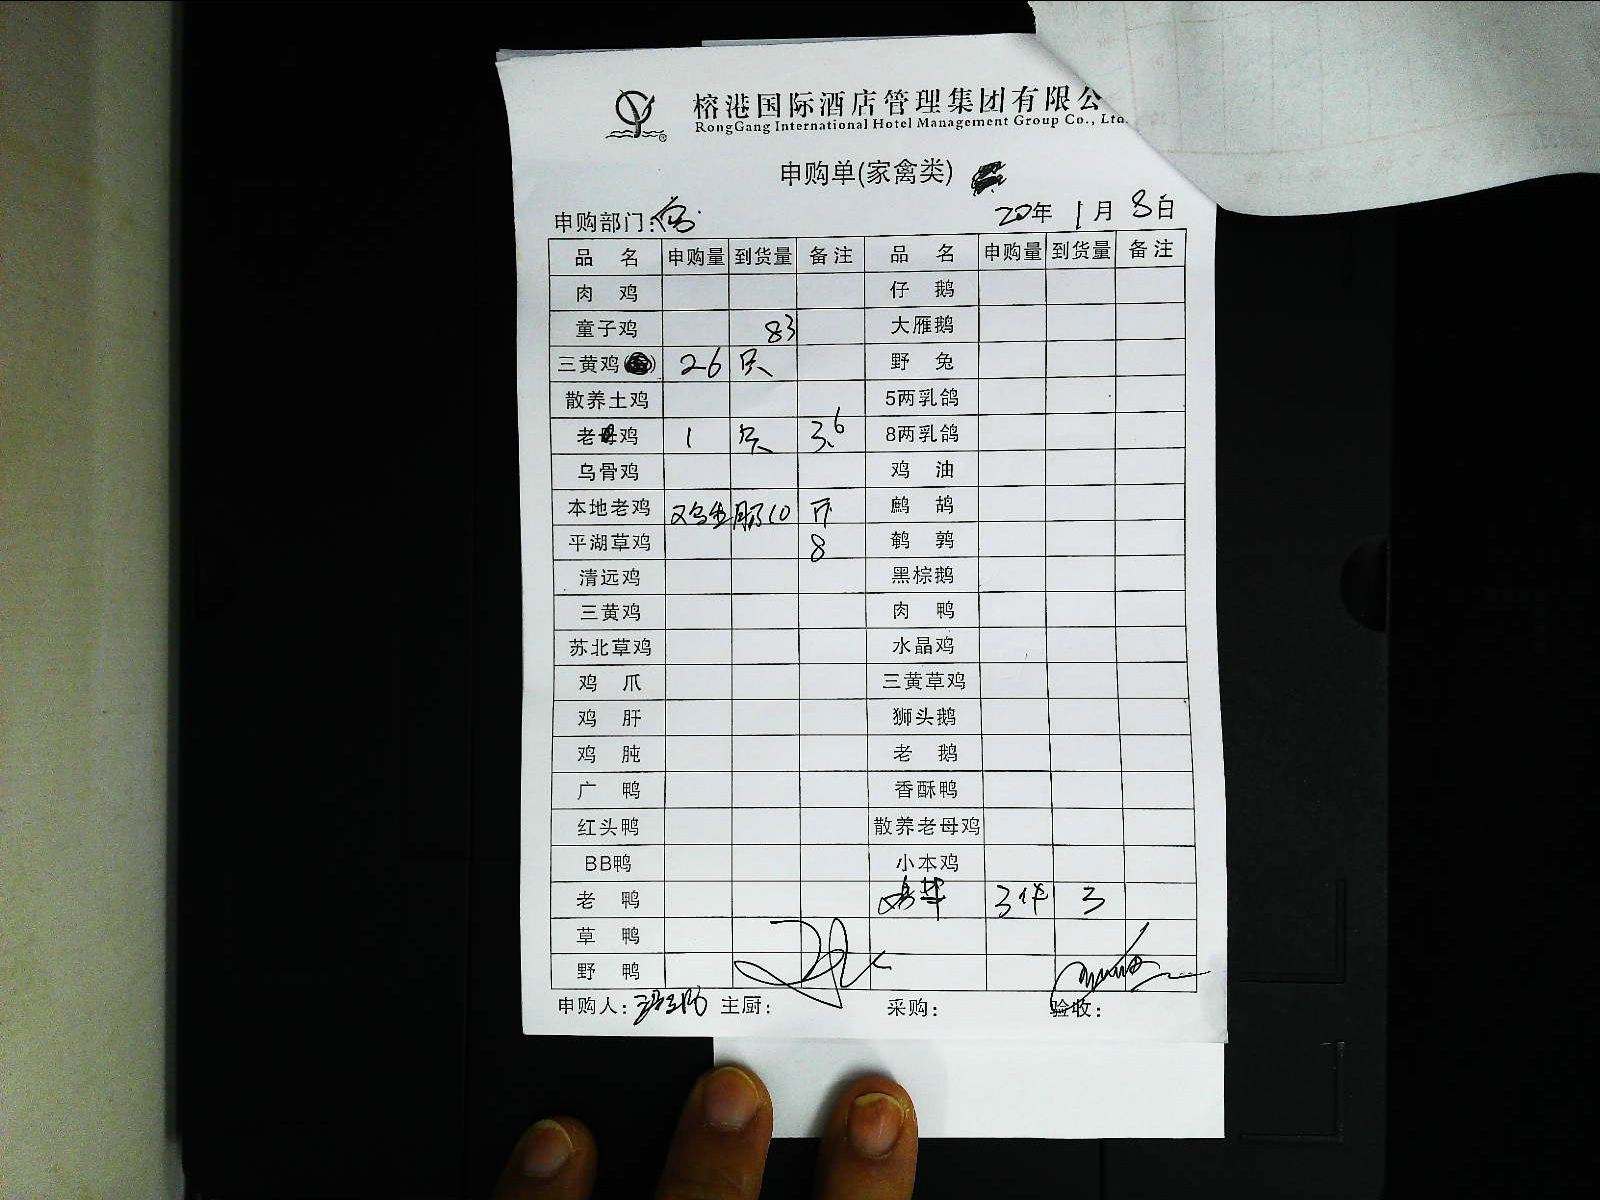 榕港国际酒店管理集团有限公
RongGang International Hotel Management Group Co., Ltd.
申购单(家禽类)
申购部门: 20年 1月 8日
品 名 申购量 到货量 备注 品 名 申购量 到货量 备注
肉 鸡 仔 鹅
童子鸡 83 大雁鹅
三黄鸡 26 只 野 兔
散养土鸡 5两乳鸽
老母鸡 1 只 3.6 8两乳鸽
乌骨鸡 鸡 油
本地老鸡 10 斤 鹧 鸪
平湖草鸡 8 鹌 鹑
清远鸡 黑棕鹅
三黄鸡 肉 鸭
苏北草鸡 水晶鸡
鸡 爪 三黄草鸡
鸡 肝 狮头鹅
鸡 肫 老 鹅
广 鸭 香酥鸭
红头鸭 散养老母鸡
BB鸭 小本鸡
老 鸭 3件 3
草 鸭
野 鸭
申购人: 主厨: 采购: 验收: